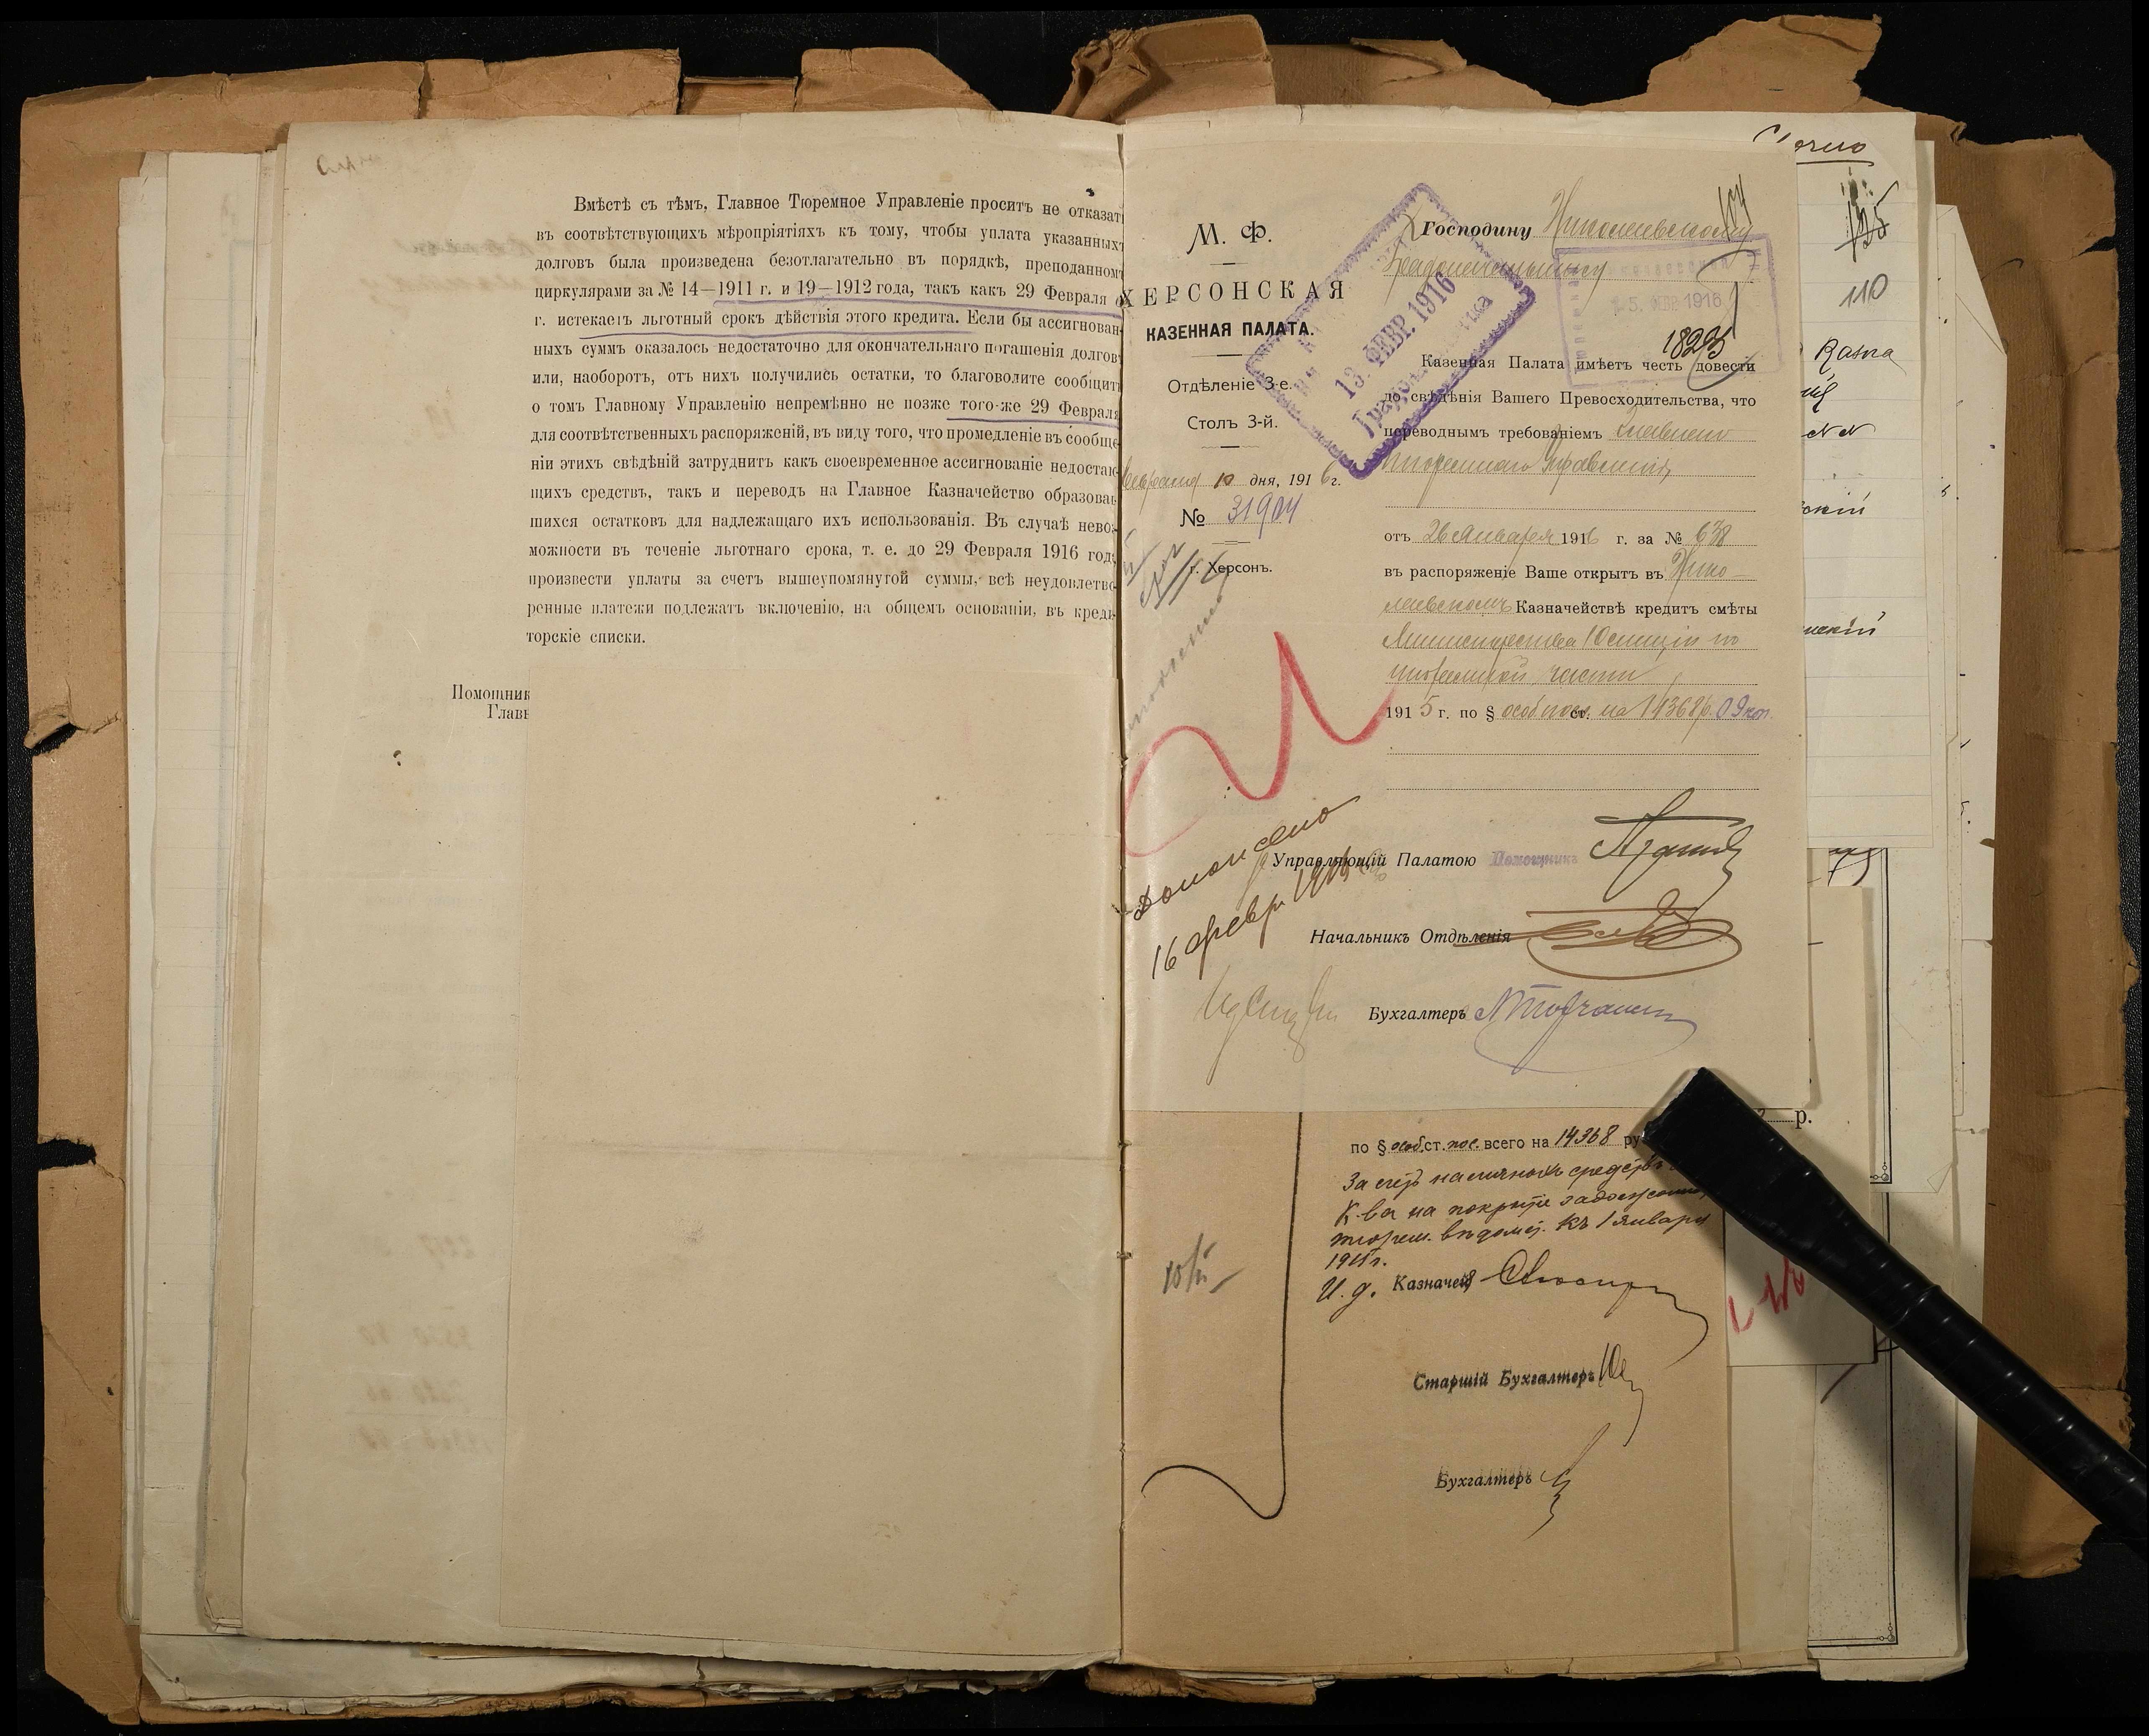 Вмѣстѣ съ тѣмъ, Главное Тюремное Управленіе проситъ не отказат
въ соотвѣтствующихъ мѣропріятіяхъ къ тому, чтобы уплата указанныхъ
долговъ была произведена безотлагательно въ порядкѣ, преподанном
циркулярами за № 14—1911 г. и 19—1912 года, такъ какъ 29 Февраля с
г. истекаетъ льготный срокъ дѣйствія этого кредита. Если бы ассигнован
ныхъ суммъ оказалось недостаточно для окончательнаго погашенія долгов
или, наоборотъ, отъ нихъ получились остатки, то благоволите сообщить
о томъ Главному Управленію непремѣнно не позже того-же 29 Февраля
для соотвѣтственныхъ распоряженій, въ виду того, что промедленіе въ сообще
ніи этихъ свѣдѣній затруднитъ какъ своевременное ассигнованіе недостаю
щихъ средствъ, такъ и переводъ на Главное Казначейство образовав
шихся остатковъ для надлежащаго ихъ использованія. Въ случаѣ невоз
можности въ теченіе льготнаго срока, т. е. до 29 Февраля 1916 года
произвести уплаты за счетъ вышеупомянутой суммы, всѣ неудовлетво
ренные платежи подлежатъ включенію, на общемъ основаніи, въ креди
торскіе списки.
Помощник
Главн
М. Ф.
ХЕРСОНСКАЯ
КАЗЕННАЯ ПАЛАТА.
Отдѣленіе 3-е.
Столъ 3-й.
Февраля 10 дня, 1916 г.
№ 31904
г. Херсонъ.
13. ФЕВР. 1916
104
Господину Николаевскому
Градоначальнику
5. ФЕВ 1916
1823
Казенная Палата имѣетъ честь довести
до свѣдѣнія Вашего Превосходительства, что
переводнымъ требованіемъ Главнаго
Тюремнаго Управленія,
отъ 26 Января 1916 г. за № 638
въ распоряженіе Ваше открытъ въ Нико-
лаевскомъ Казначействѣ кредитъ смѣты
Министерства Юстиціи по
тюремной части
1915 г. по § особ пос. ст. на 14368 р. 09 коп.
Доложено
16 февр. 1916
Управляющій Палатою Помощникъ
Начальникъ Отдѣленія
Бухгалтеръ
по § особ. ст. пос. всего на 14368 ру
За счетъ наличныхъ средствъ
К-ва на покрытіе задолжен
тюрем. вѣдомст. къ 1 Января
1915 г.
И. д. Казначей
Старшій Бухгалтеръ
Бухгалтеръ
125
110
р.